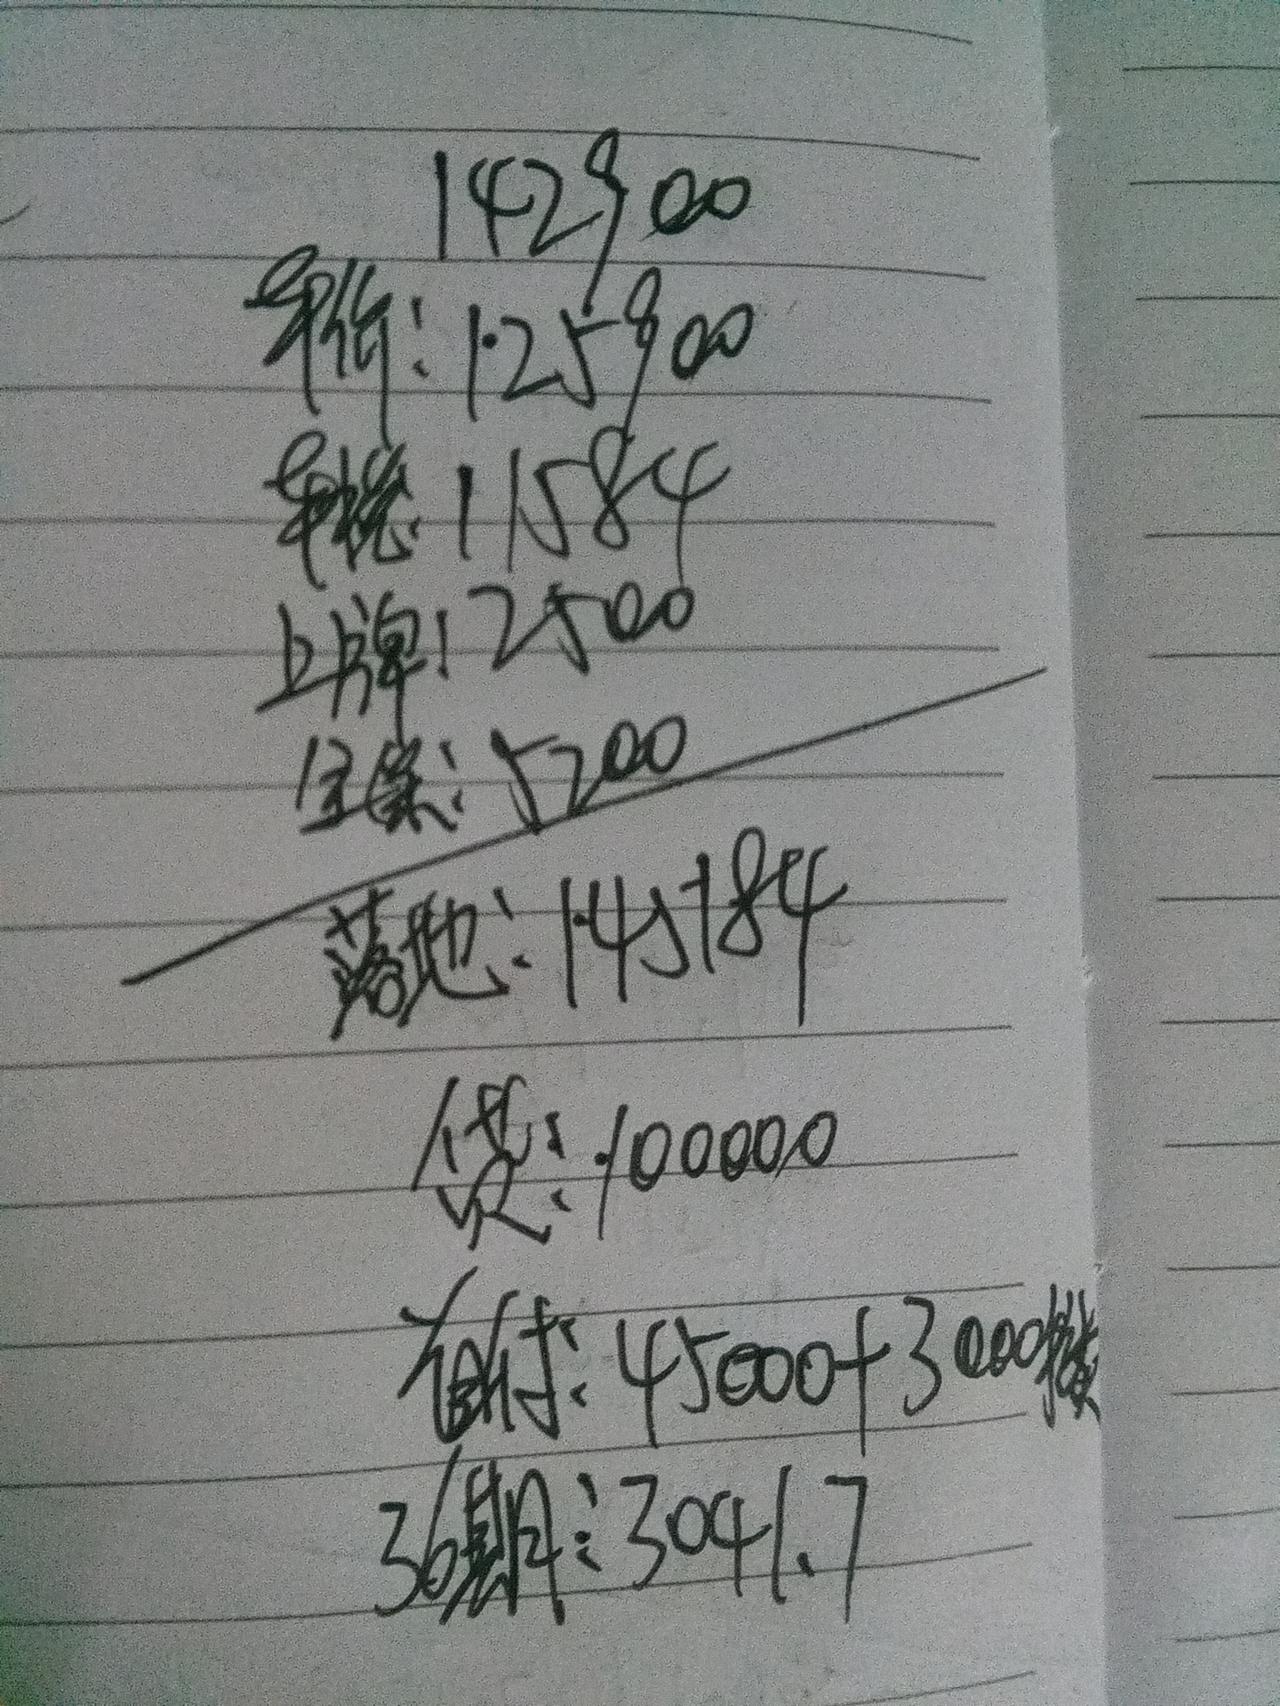 142900
车价:125900
车税:11584
上牌:2500
全保:5200
落地:145184
贷:100000
首付:45000+3000
36期:3041.7